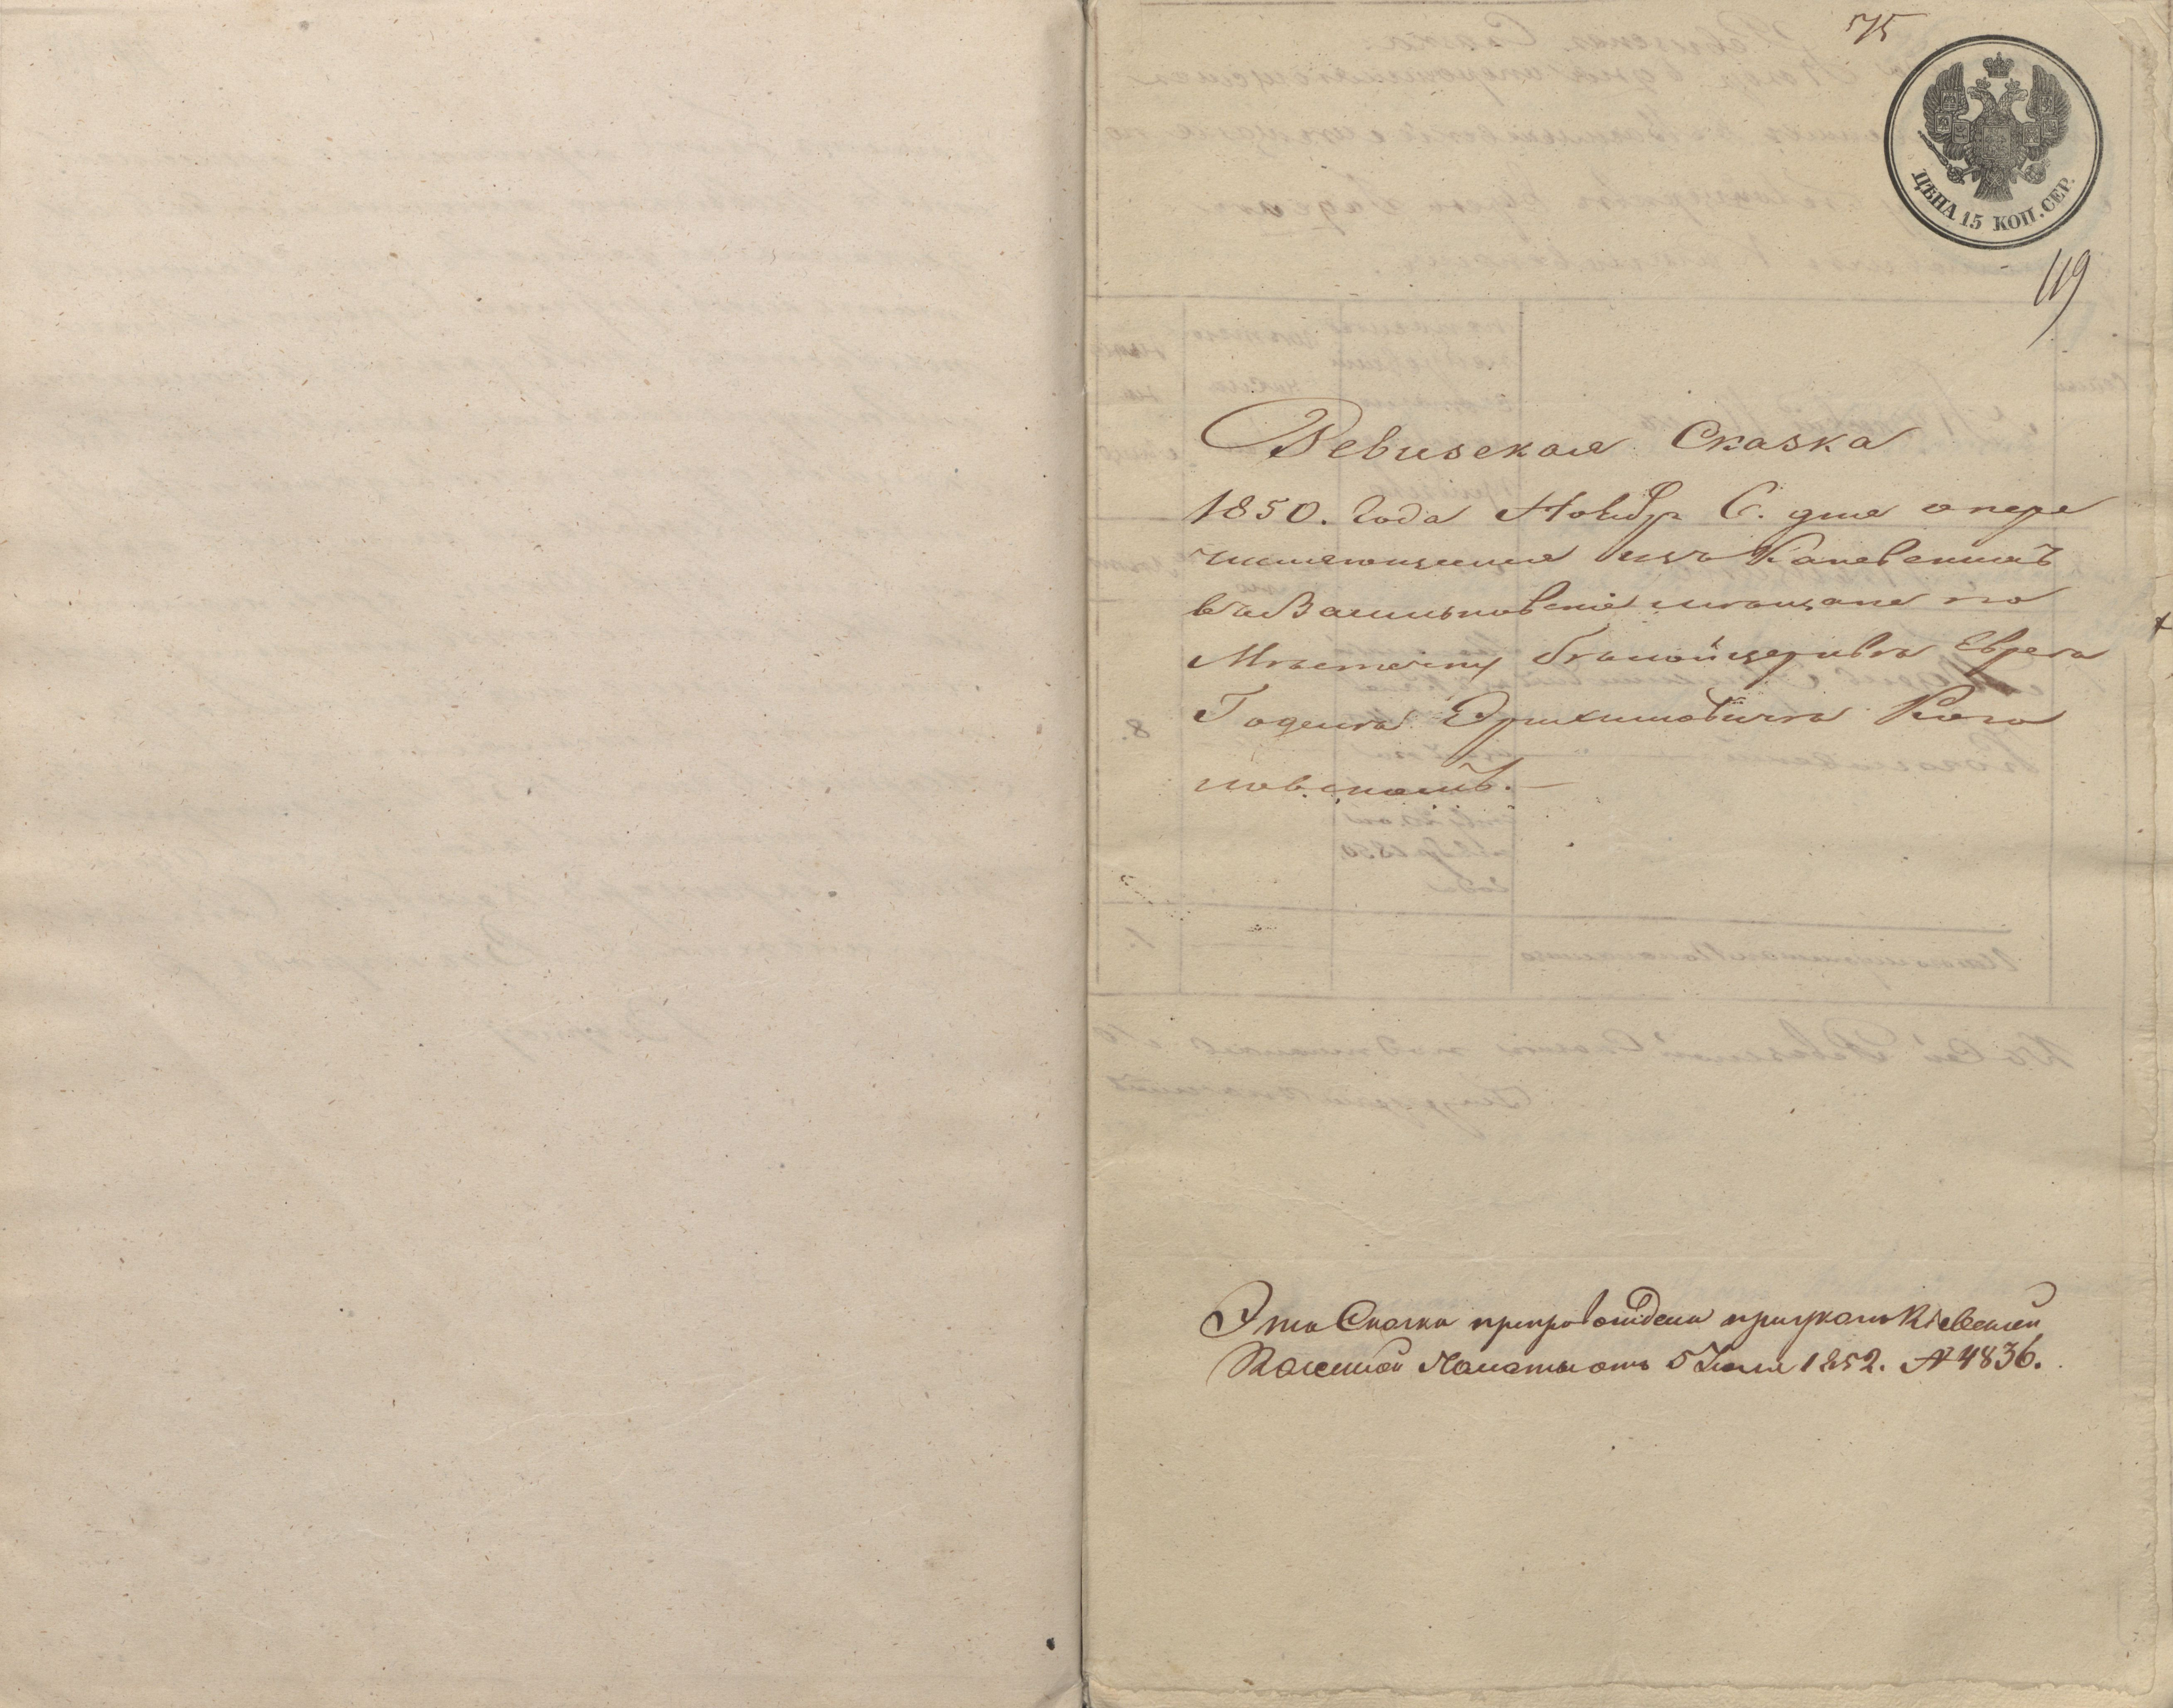 575
ЦѢНА 15 КОП. СЕР.
119
Ревизская Сказка
1850. Года Ноябр 6. дня о пере
числяющемся изъ Каневскихъ
въ Васильковскіе мещане по
Мѣстечку Бѣлойцеркви Еврея
Когановскомъ.—
Эта Сказка препровождена при указѣ Кіевской
Казенной Палаты отъ 5 Іюля 1852. № 4836.